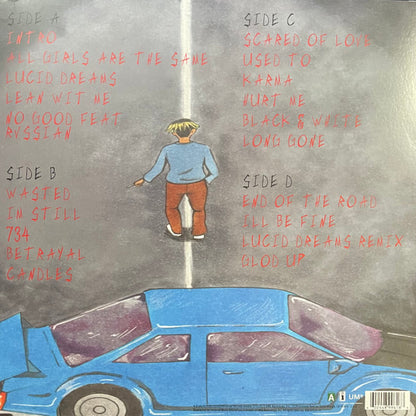 SIDE A
INTRO
ALL GIRLS ARE THE SAME
LUCID DREAMS
LEAN WIT ME
NO GOOD FEAT
RVSSIAN
SIDE B
WASTED
IN STILL
734
BETRAYAL
CANDLES
SIDE C
SCARED OF LOVE
USED TO
KARNA
HURT ME
BLACK & WHITE
LONG GONE
SIDE D
END OF THE ROAD
ILL BE FINE
LUCID DREAMS REMIX
GLOD UP
A